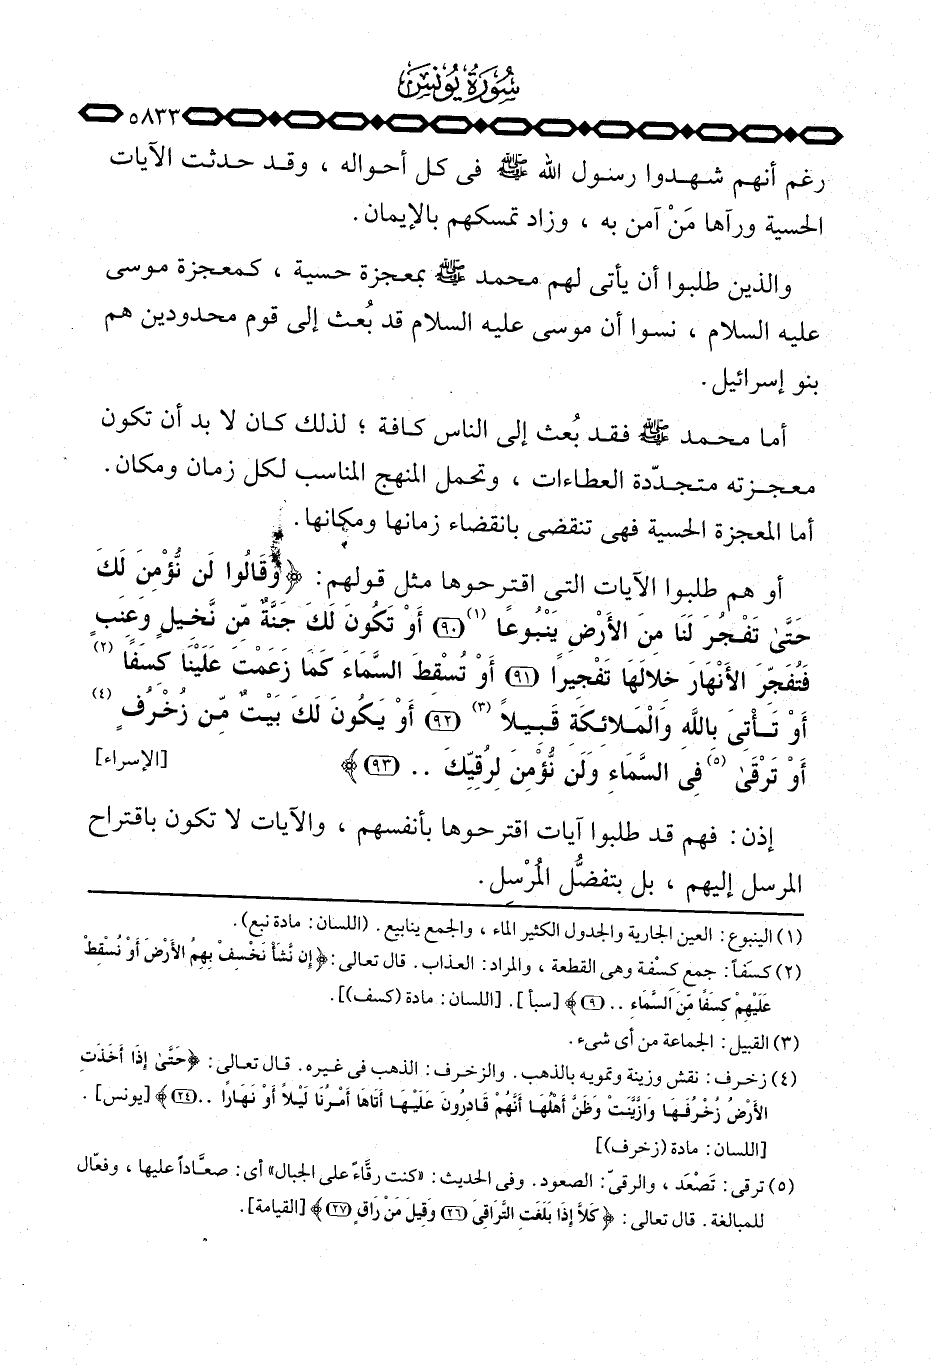 سُورَةُ يُونُسَ
٥٨٣٣
رغم أنهم شهدوا رسول الله ﷺ فى كل أحواله ، وقد حدثت الآيات
الحسية ورآها مَنْ آمن به ، وزاد تمسكهم بالإيمان.
والذين طلبوا أن يأتى لهم محمد ﷺ بمعجزة حسية ، كمعجزة موسى
عليه السلام ، نسوا أن موسى عليه السلام قد بُعث إلى قوم محدودين هم
بنو إسرائيل.
أما محمد ﷺ فقد بُعث إلى الناس كافة ؛ لذلك كان لا بد أن تكون
معجزته متجدّدة العطاءات ، وتحمل المنهج المناسب لكل زمان ومكان.
أما المعجزة الحسية فهى تنقضى بانقضاء زمانها ومكانها.
أو هم طلبوا الآيات التى اقترحوها مثل قولهم: ﴿وَقَالُوا لَن نُّؤْمِنَ لَكَ
حَتَّىٰ تَفْجُرَ لَنَا مِنَ الأَرْضِ يَنْبُوعًا (١) (٩٠) أَوْ تَكُونَ لَكَ جَنَّةٌ مِّن نَّخِيلٍ وَعِنَبٍ
فَتُفَجِّرَ الأَنْهَارَ خِلالَهَا تَفْجِيرًا (٩١) أَوْ تُسْقِطَ السَّمَاءَ كَمَا زَعَمْتَ عَلَيْنَا كِسَفًا (٢)
أَوْ تَأْتِىَ بِاللَّهِ وَالْمَلائِكَةِ قَبِيلاً (٣) (٩٢) أَوْ يَكُونَ لَكَ بَيْتٌ مِّن زُخْرُفٍ (٤)
أَوْ تَرْقَىٰ (٥) فِى السَّمَاءِ وَلَن نُّؤْمِنَ لِرُقِيِّكَ .. (٩٣)﴾ [الإسراء]
إذن: فهم قد طلبوا آيات اقترحوها بأنفسهم ، والآيات لا تكون باقتراح
المرسل إليهم ، بل بتفضُّل المُرْسِل.
(١) الينبوع: العين الجارية والجدول الكثير الماء ، والجمع ينابيع. (اللسان: مادة نبع).
(٢) كسَفاً: جمع كسْفة وهى القطعة ، والمراد: العذاب. قال تعالى: ﴿إِن نَّشَأْ نَخْسِفْ بِهِمُ الأَرْضَ أَوْ نُسْقِطْ
عَلَيْهِمْ كِسَفًا مِّنَ السَّمَاءِ .. (٩)﴾ [سبأ]. [اللسان: مادة (كسف)].
(٣) القبيل: الجماعة من أى شىء.
(٤) زخرف: نقش وزينة وتمويه بالذهب. والزخرف: الذهب فى غيره. قال تعالى: ﴿حَتَّىٰ إِذَا أَخَذَتِ
الأَرْضُ زُخْرُفَهَا وَازَّيَّنَتْ وَظَنَّ أَهْلُهَا أَنَّهُمْ قَادِرُونَ عَلَيْهَا أَتَاهَا أَمْرُنَا لَيْلاً أَوْ نَهَارًا ..(٢٤)﴾ [يونس].
[اللسان: مادة (زخرف)]
(٥) ترقى: تَصْعَد ، والرقىّ: الصعود. وفى الحديث: «كنت رقَّاءً على الجبال» أى: صعَّاداً عليها ، وفعّال
للمبالغة. قال تعالى: ﴿كَلاَّ إِذَا بَلَغَتِ التَّرَاقِىَ (٢٦) وَقِيلَ مَنْ رَاقٍ (٢٧)﴾ [القيامة].